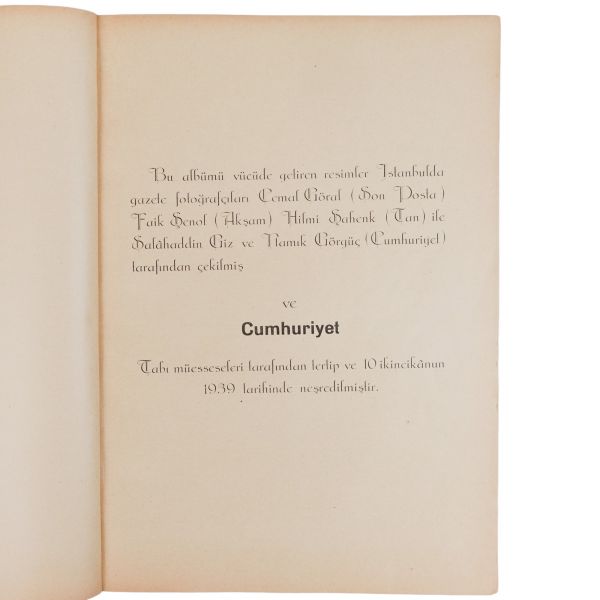 Bu albümü vücüde geliren resimler İstanbulda
gazete fotoğrafçıları Cemal Göral ( Son Posta )
Faik Şenol ( Akşam ) Hilmi Şahenk ( Tan ) ile
Salâhaddin Giz ve Namık Görgüç ( Cumhuriyet )
tarafından çekilmiş
ve
Cumhuriyet
Tabı müesseseleri tarafından tertip ve 10 ikincikânun
1939 tarihinde neşredilmiştir.